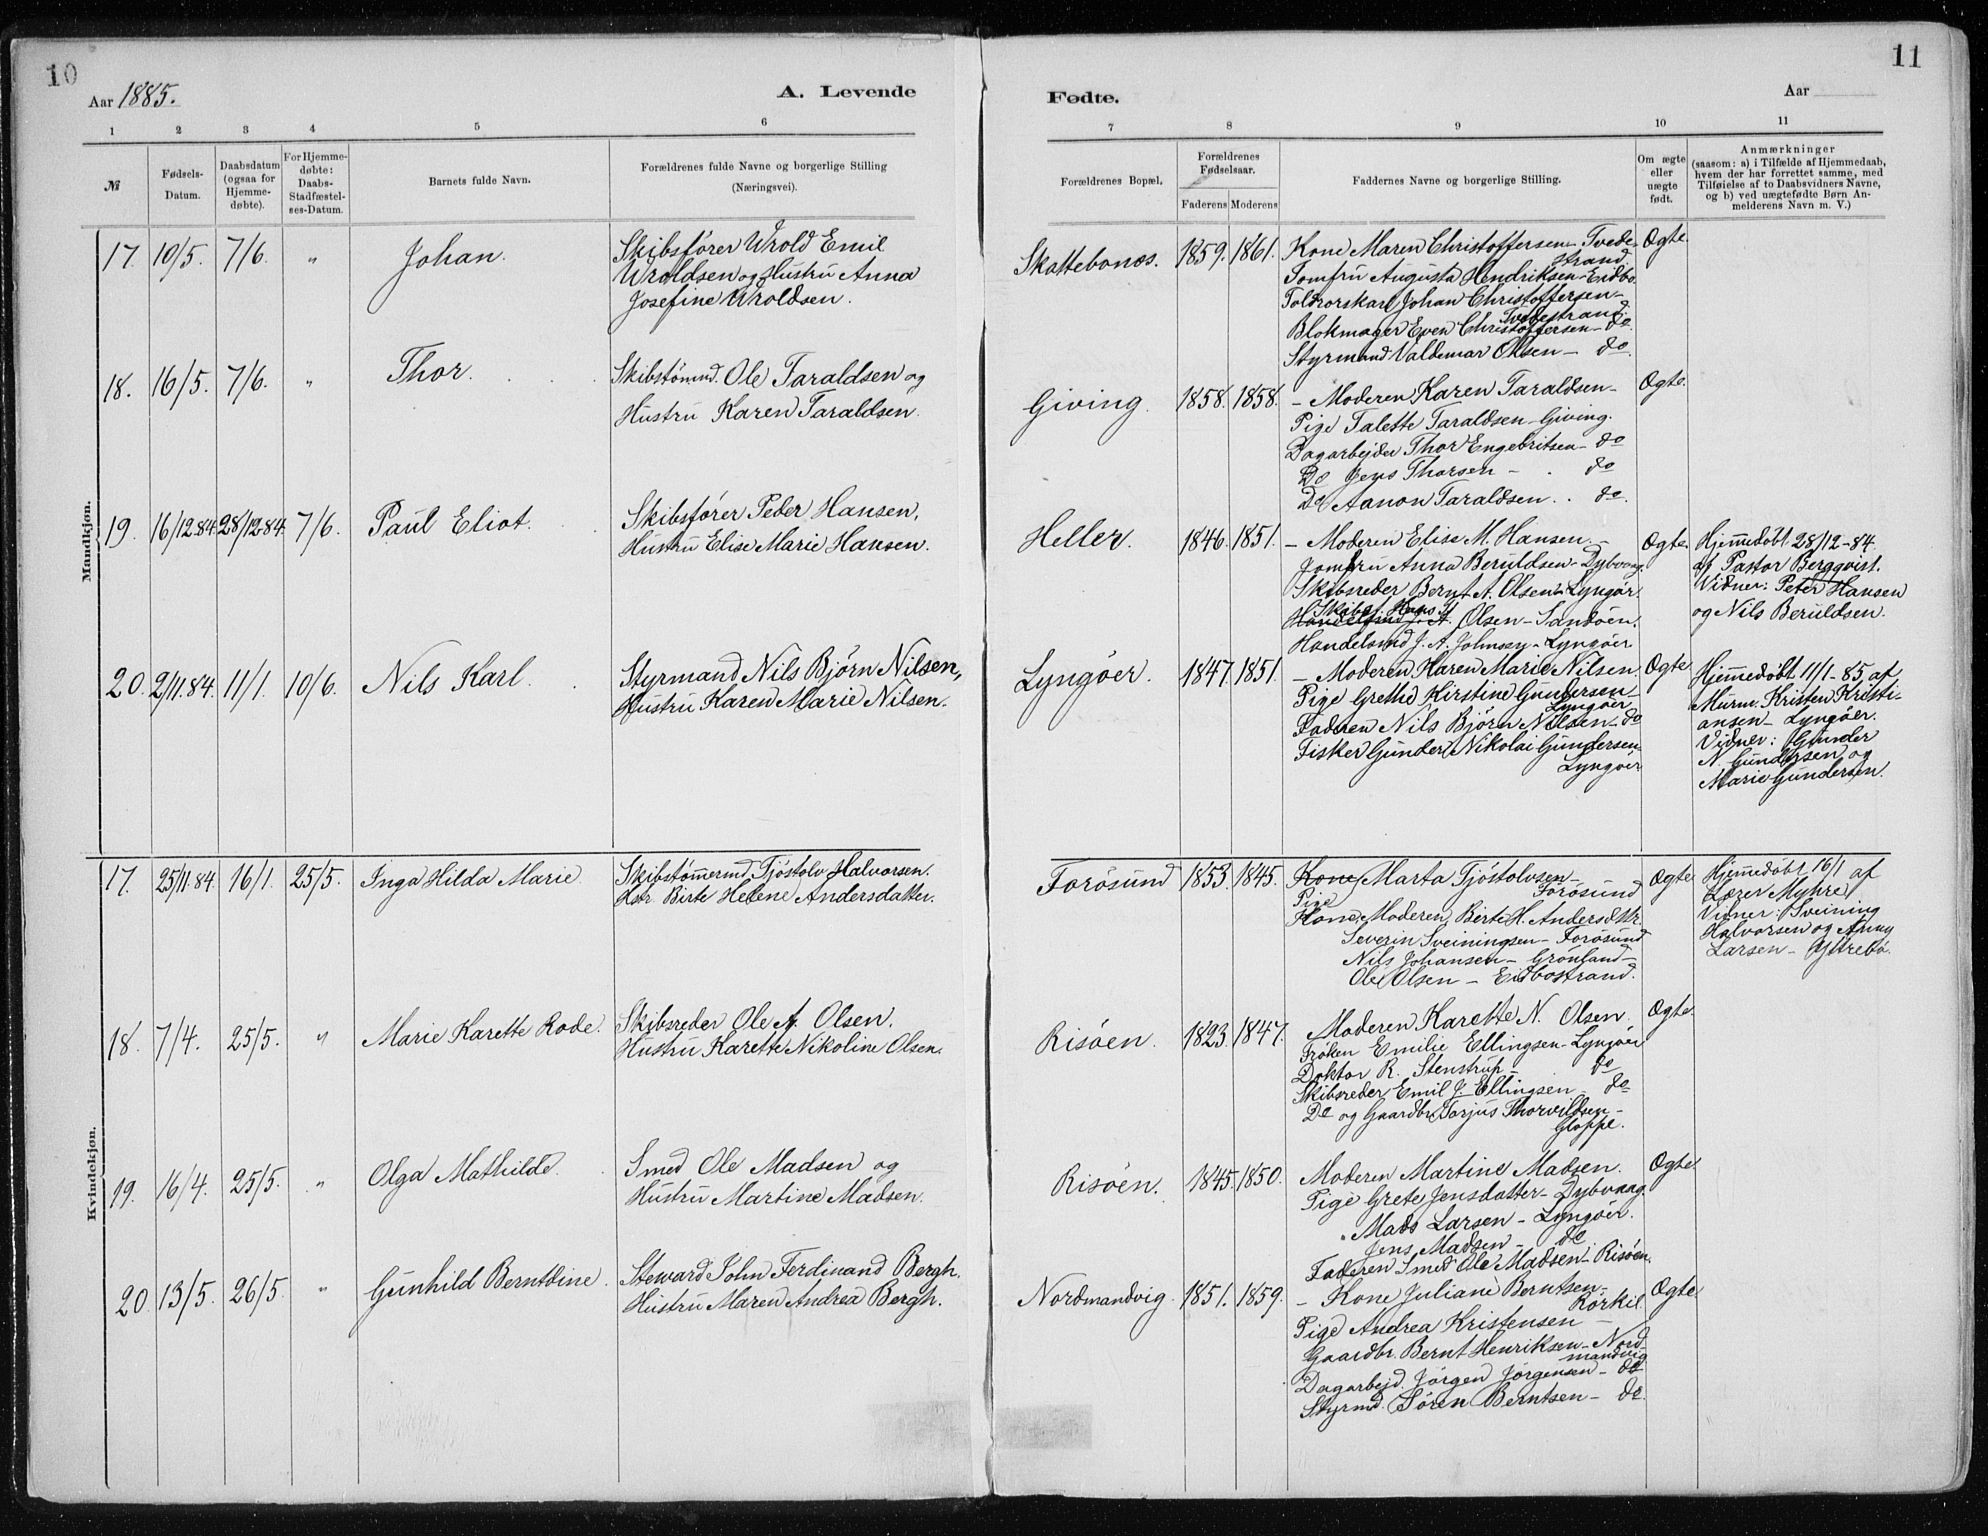 10
Aar 1885.
A. Levende
1 2 3 4 5 6
№ Fødsels-Datum. Daabsdatum (ogsaa for Hjemme-døbte). For Hjemme-døbte: Daabs-Stadfæstel-ses-Datum. Barnets fulde Navn. Forældrenes fulde Navne og borgerlige Stilling (Næringsvei).
Mandkjøn.
17. 10/5. 7/6. " Johan. Skibsfører Wrold Emil
Wroldsen og Hustru Anna
Josefine Wroldsen.
18. 16/5. 7/6. " Thor. Skibstømmd. Ole Taraldsen og
Hustru Karen Taraldsen.
19. 16/12.84. 28/12.84. 7/6. Paul Eliot. Skibsfører Peder Hansen,
Hustru Elise Marie Hansen.
20. 2/11.84. 11/1. 10/6. Nils Karl. Styrmand Nils Bjørn Nilsen,
Hustru Karen Marie Nilsen.
Kvindekjøn.
17. 25/11.84. 16/1. 25/5. Inga Hilda Marie. Skibstømmermd. Tjøstolv Halvorsen.
Hstr. Birte Helene Andersdatter.
18. 7/4. 25/5. " Marie Karette Rode. Skibsreder Ole A. Olsen.
Hustru Karette Nikoline Olsen.
19. 16/4. 25/5. " Olga Mathilde. Smed Ole Madsen og
Hustru Martine Madsen.
20. 13/5. 26/5. " Gunhild Berntdine. Steward John Ferdinand Bergh.
Hustru Maren Andrea Bergh.
11
Fødte.
Aar
7 8 9 10 11
Forældrenes Bopæl. Forældrenes Fødselsaar. Faderens Moderens Faddernes Navne og borgerlige Stilling. Om ægte eller uægte født. Anmærkninger (saasom: a) i Tilfælde af Hjemmedaab, hvem der har forrettet samme, med Tilføielse af to Daabsvidners Navne, og b) ved uægtefødte Børn An-melderens Navn m. V.)
Skattebonæs. 1859. 1861. Kone Maren Christoffersen Tvede- Ægte.
strand
Jomfru Augusta Hendriksen Eidbo.
Johan Christoffersen
Tvedestrand
Blokmager Even Christoffersen - do.
Styrmand Valdemar Olsen - do.
Giving. 1858. 1858. - Moderen Karen Taraldsen - Ægte.
Pige Talette Taraldsen - Giving.
Dagarbejder Thor Engebritsen - do
Do Jens Thorsen - do
Do Aanon Taraldsen. do.
Heller. 1846. 1851. - Moderen Elise M. Hansen. Ægte. Hjemmedøbt 28/12-84.
Jomfru Anna Beruldsen - Dybvaag. af Pastor Bergqvist.
Skibsreder Bernt A. Olsen - Lyngør Vidner: Peter Hansen
Skibsf. Hans A. Olsen - Sandøen. og Nils Beruldsen.
Handelsmd J. A. Johnsen - Lyngøer
Lyngøer. 1847. 1851. - Moderen Karen Marie Nilsen. Ægte. Hjemmedøbt 11/1-85 af
Pige Grethe Kirstine Gundersen - Murm. Kristen Kristi-
Lyngøer ansen - Lyngøer.
Faderen Nils Bjørn Nilsen - do Vidner: Gunder
Fisker Gunder Nikolai Gundersen N. Gundersen og
Lyngøer Marie Gundersen.
Forøsund 1853. 1845. Kone Marta Tjøstolvsen - Ægte Hjemmedøbt 16/1 af
Forøsund Lærer Myhre
Pige
Kone Moderen Birte H. Andersdtr. Vidner: Sveining
Severin Sveiningsen - Forøsund Halvorsen og
Nils Johansen - Grønland - Larsen -
Ole Olsen - Eidbostrand.
Risøen. 1823. 1847. Moderen Karette N. Olsen. Ægte.
Frøken Emilie Ellingsen - Lyngøer
Doktor R. Stenstrup - do
Skibsreder Emil J. Ellingsen - do
Do og Gaardbr. Torjus Thorvildsen -
Gloppe.
Risøen. 1845. 1850. Moderen Martine Madsen. Ægte.
Pige Grete Jensdatter - Dybvaag.
Mads Larsen - Lyngøer.
Jens Madsen - do
Faderen Smed Ole Madsen Risøen.
Nordmandvig. 1851. 1859. - Kone Juliane Berntsen - Ægte.
Rørkil
Pige Andrea Kristensen -
Gaardbr. Bernt Henriksen - Nord-
mandvig
Dagarbejd. Jørgen Jørgensen - do
Styrmd. Søren Berntsen - do.